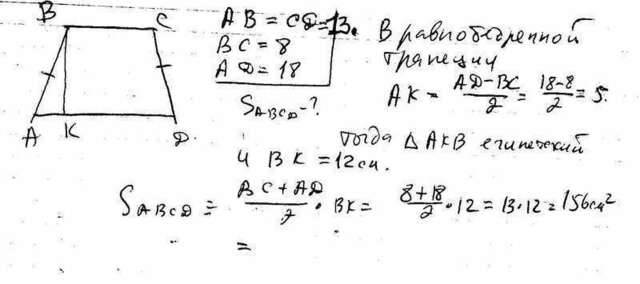 B C
A K D
AB = CD = 13.
BC = 8
AD = 18
S_ABCD - ?
В равнобедренной
трапеции
AK = (AD - BC)/2 = (18-8)/2 = 5.
тогда △AKB египетский
и BK = 12 см.
S_ABCD = (BC + AD)/2 · BK = (8+18)/2 · 12 = 13 · 12 = 156 см²
=